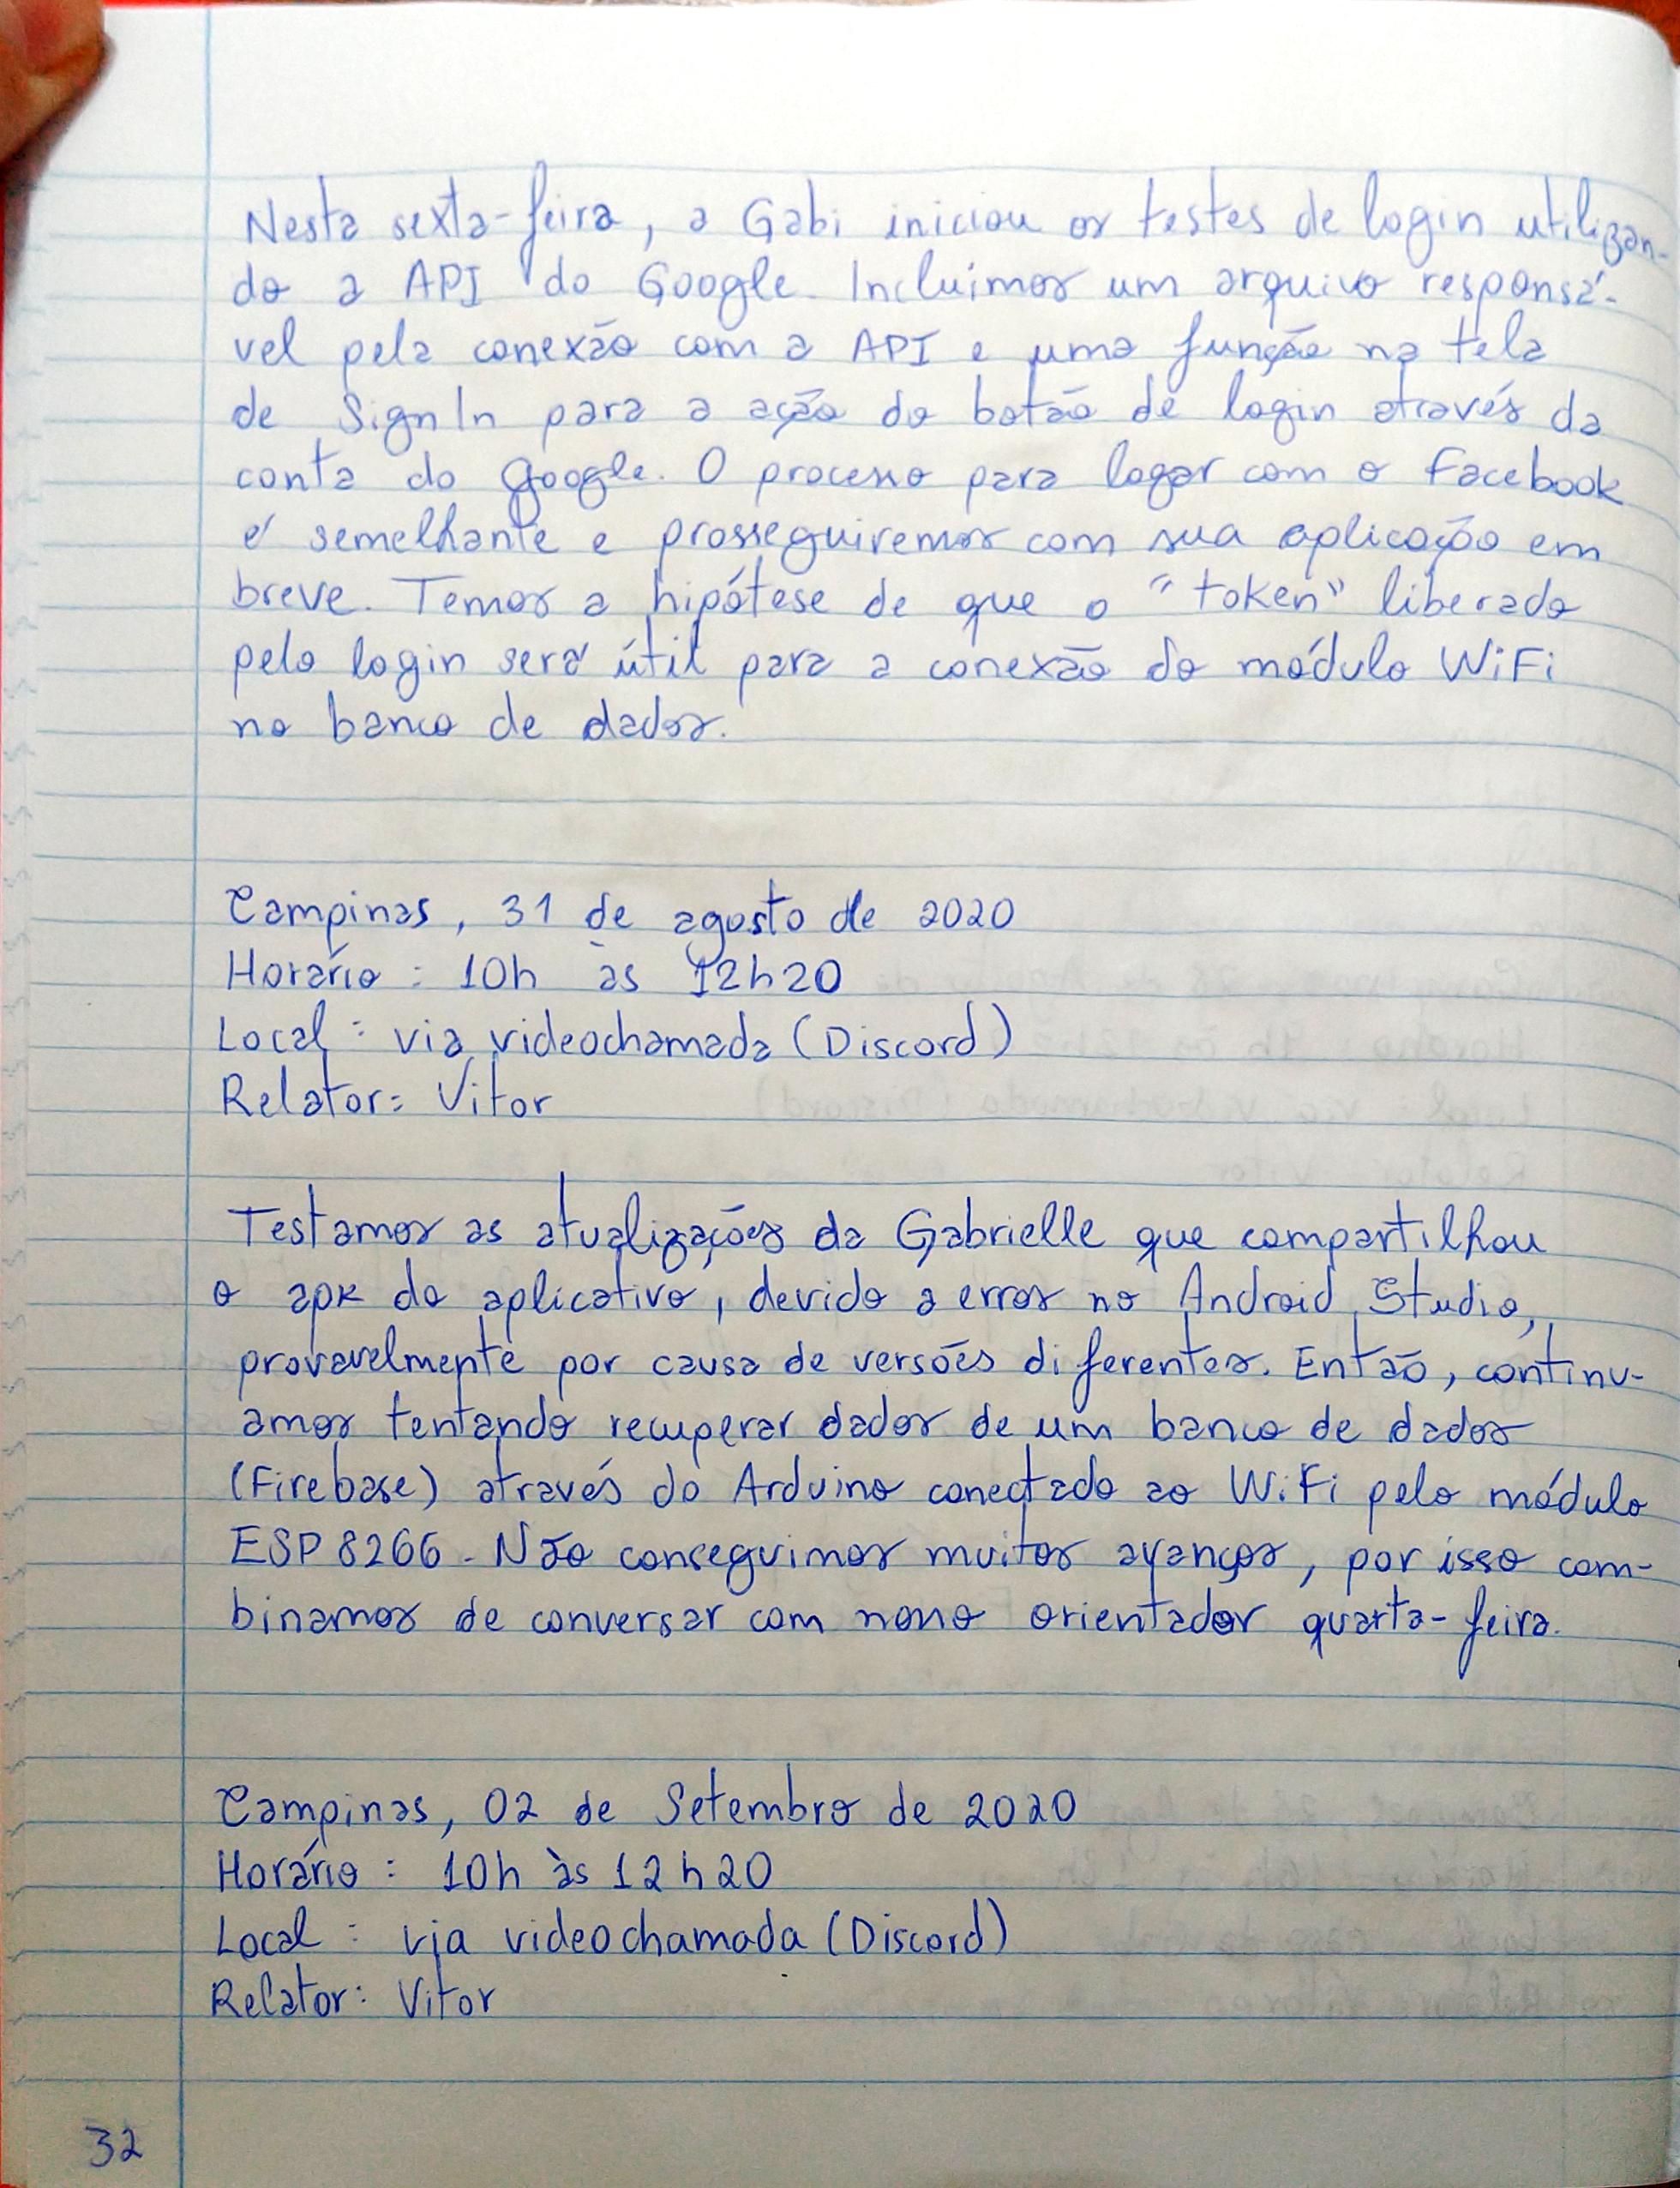 Nesta sexta-feira, a Gabi iniciou os testes de login utilizan-
do a API do Google. Incluímos um arquivo responsá-
vel pela conexão com a API e uma função na tela
de SignIn para a ação do botão de login através da
conta do Google. O processo para logar com o Facebook
é semelhante e prosseguiremos com sua aplicação em
breve. Temos a hipótese de que o "token" liberado
pelo login será útil para a conexão do módulo WiFi
no banco de dados.
Campinas, 31 de agosto de 2020
Horário: 10h às 12h20
Local: via videochamada (Discord)
Relator: Vitor
Testamos as atualizações da Gabrielle que compartilhou
o apk do aplicativo, devido a erros no Android Studio,
provavelmente por causa de versões diferentes. Então, continu-
amos tentando recuperar dados de um banco de dados
(Firebase) através do Arduino conectado ao WiFi pelo módulo
ESP8266. Não conseguimos muitos avanços, por isso com-
binamos de conversar com nosso orientador quarta-feira.
Campinas, 02 de Setembro de 2020
Horário: 10h às 12h20
Local: via videochamada (Discord)
Relator: Vitor
32